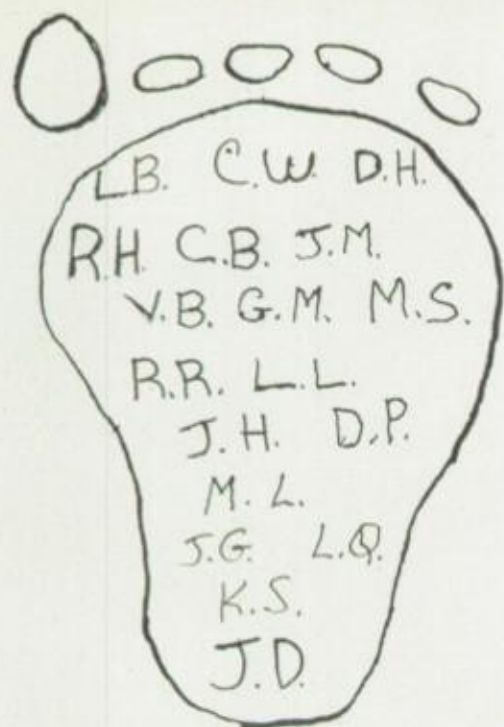 L.B. C.W. D.H.
R.H. C.B. J.M.
V.B. G.M. M.S.
R.R. L.L.
J.H. D.P.
M.L.
J.G. L.Q.
K.S.
J.D.